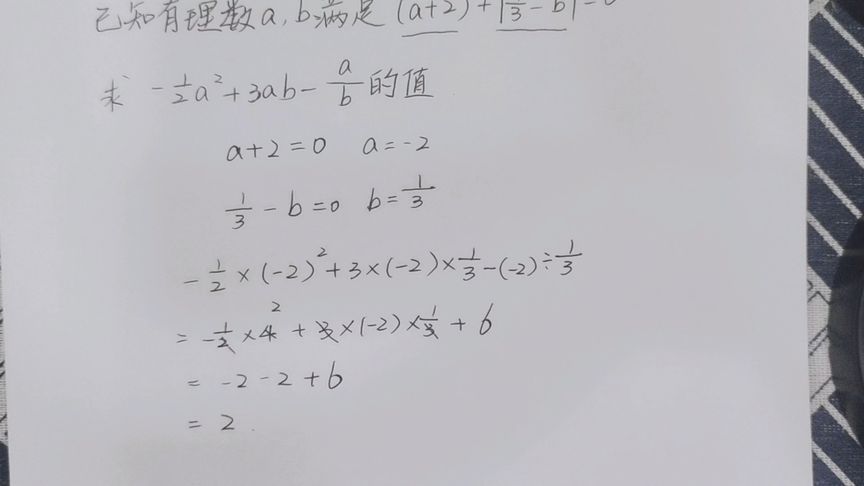 已知有理数a,b满足 (a+2)+|1/3-b|=0
求 -1/2a²+3ab-a/b的值
a+2=0 a=-2
1/3-b=0 b=1/3
-1/2×(-2)²+3×(-2)×1/3-(-2)÷1/3
=-1/2×4 2+3×(-2)×1/3+6
=-2-2+6
=2.